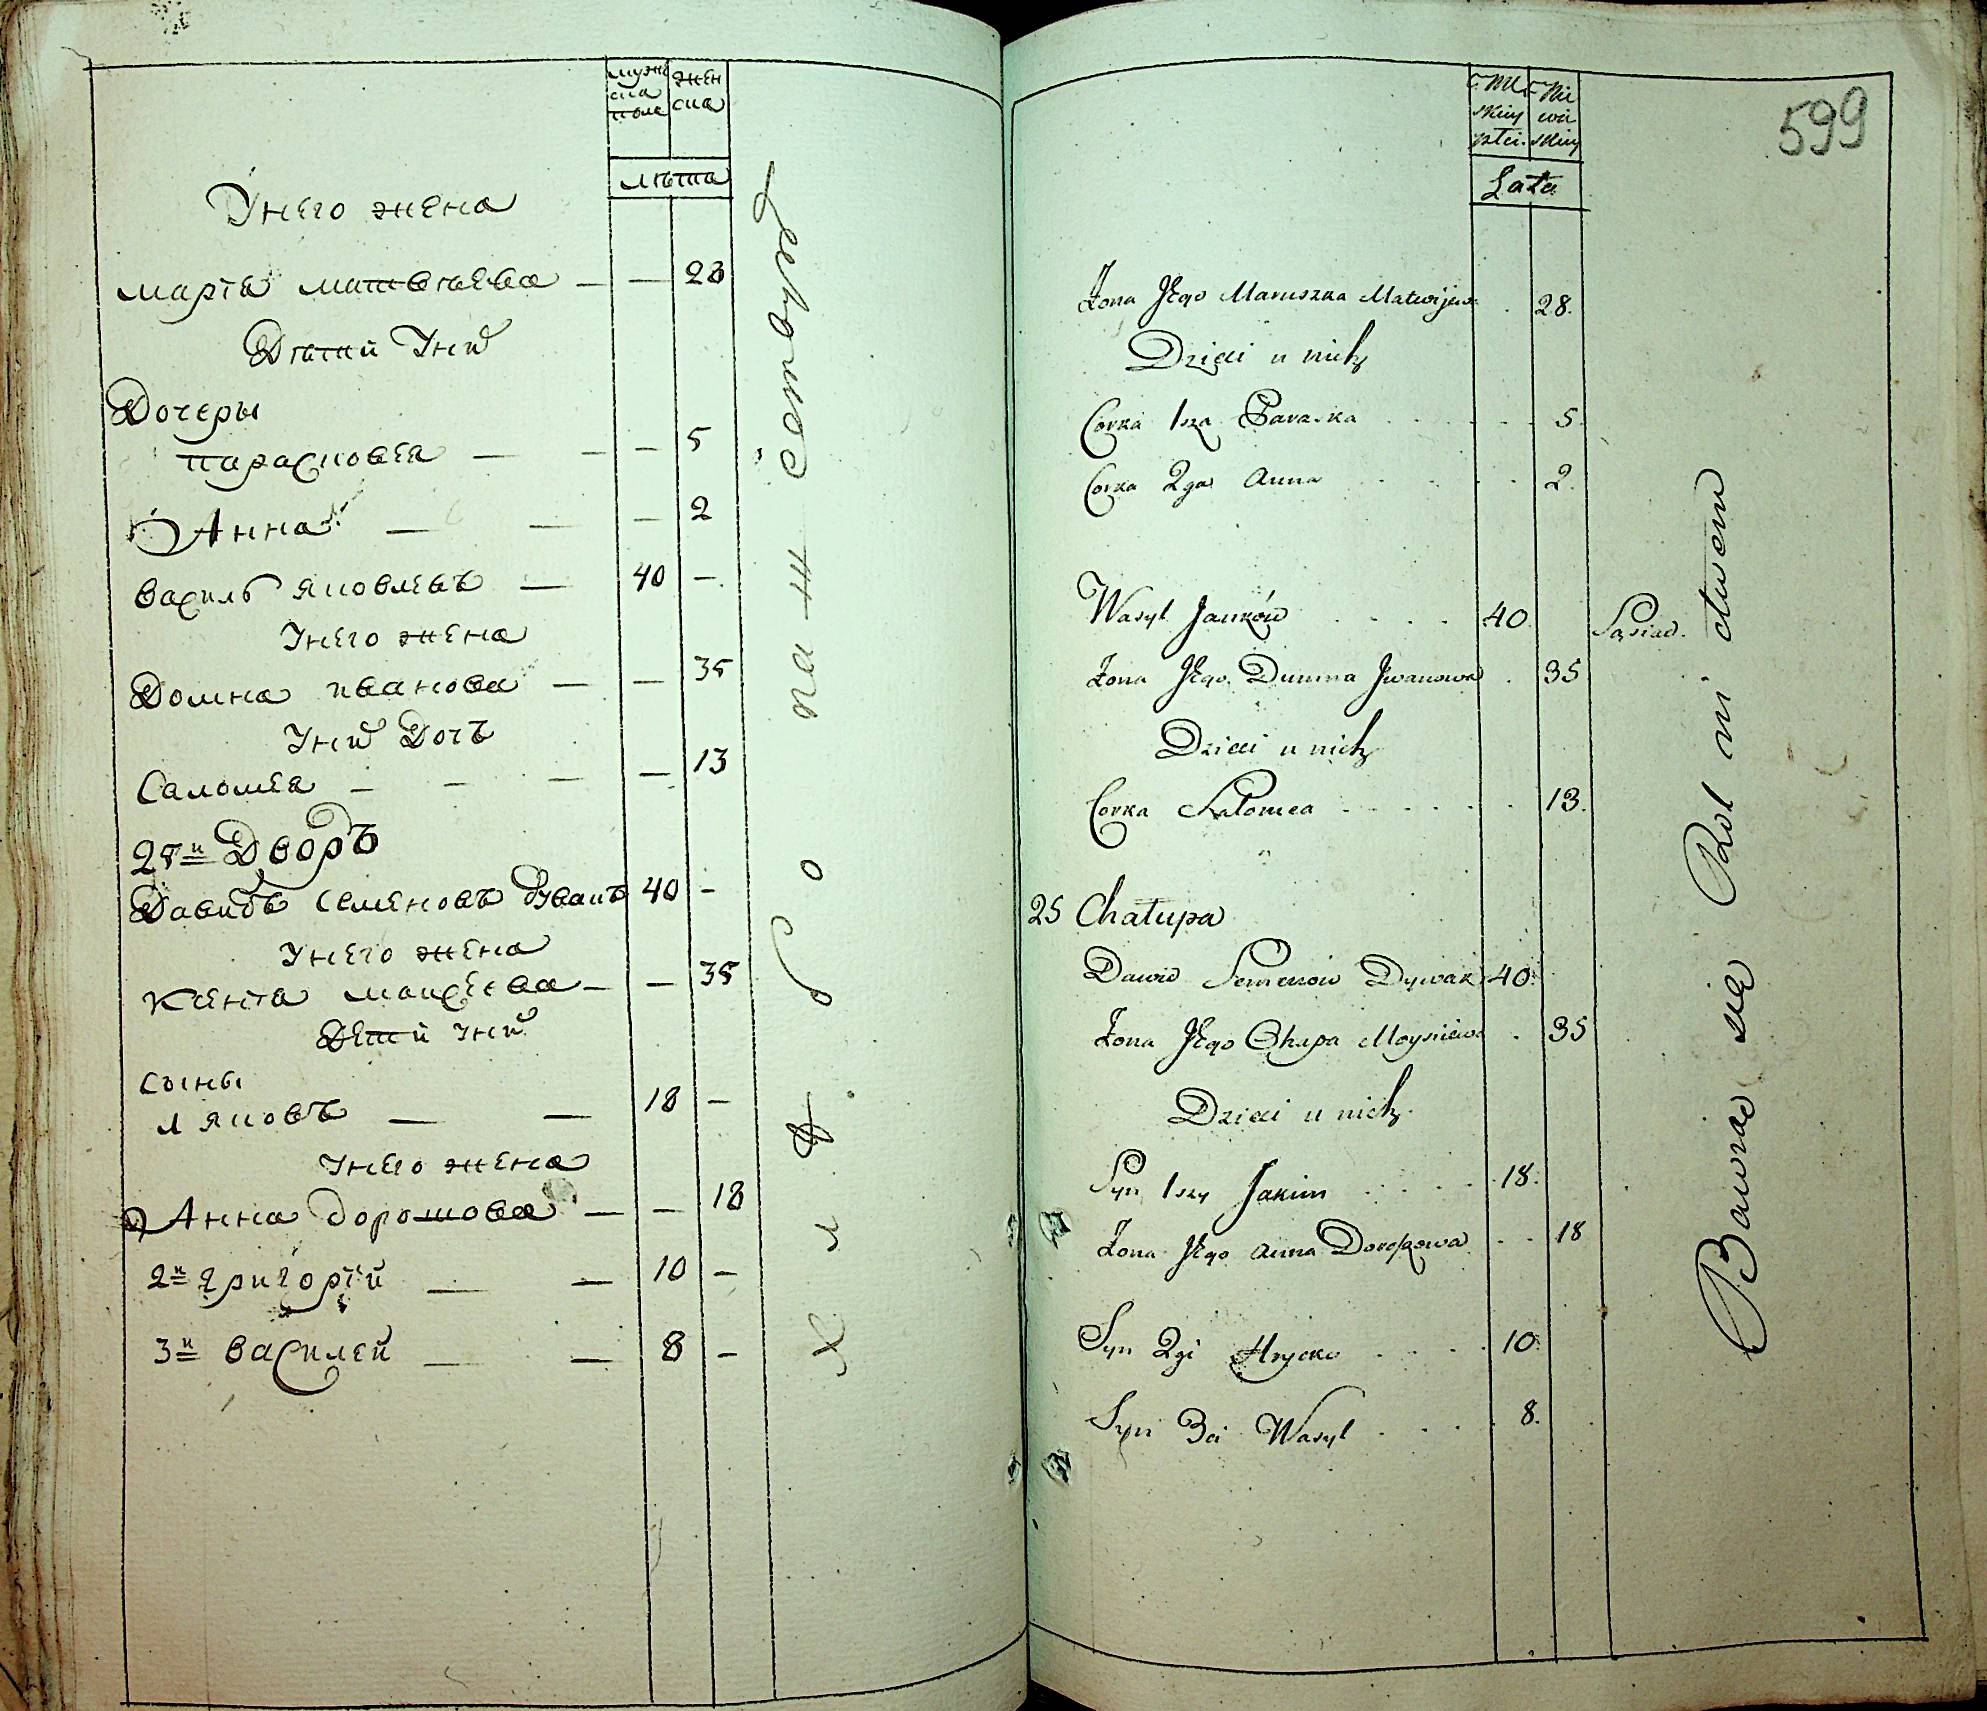 мужеска пола
женска
лѣта
Унего жена
марія матвѣева — — 28
Дѣтей Уних
Дочеры
парасковея — — — 5
Анна — — — 2
василь яковлевъ — 40 —
Унего жена
Домна иванова — — 35
Уних Дочъ
Саломея — — — — 13
25й Дворъ
Давидъ Семеновъ дывакъ 40 —
Унего жена
моисеева — — 35
Детей уних
сыны
яковъ — — 18 —
Унего жена
Анна дорошова — — 18
2й григорій — — 10 —
3й василей — — 8 —
599
Męskiey płci
Niewieskiey
Lata
Żona Jego Maruszka Matwijewa . 28.
Dzieci u nich
Corka 1sza Paraska 5.
Corka 2ga Anna 2.
Wasyl Janków 40. Sąsiad.
Żona Jego Dumna Jwanowa . 35
Dzieci u nich
Corka Salomea 13.
25 Chałupa
Dawid Semenow Dywak 40.
Żona Jego Moysiiewa . 35
Dzieci u nich
Syn 1szy Jakim 18.
Żona Jego Anna 18
Syn 2gi Hrycko 10.
Syn 3ci Wasyl 8.
Bawiąc się Rolnictwem